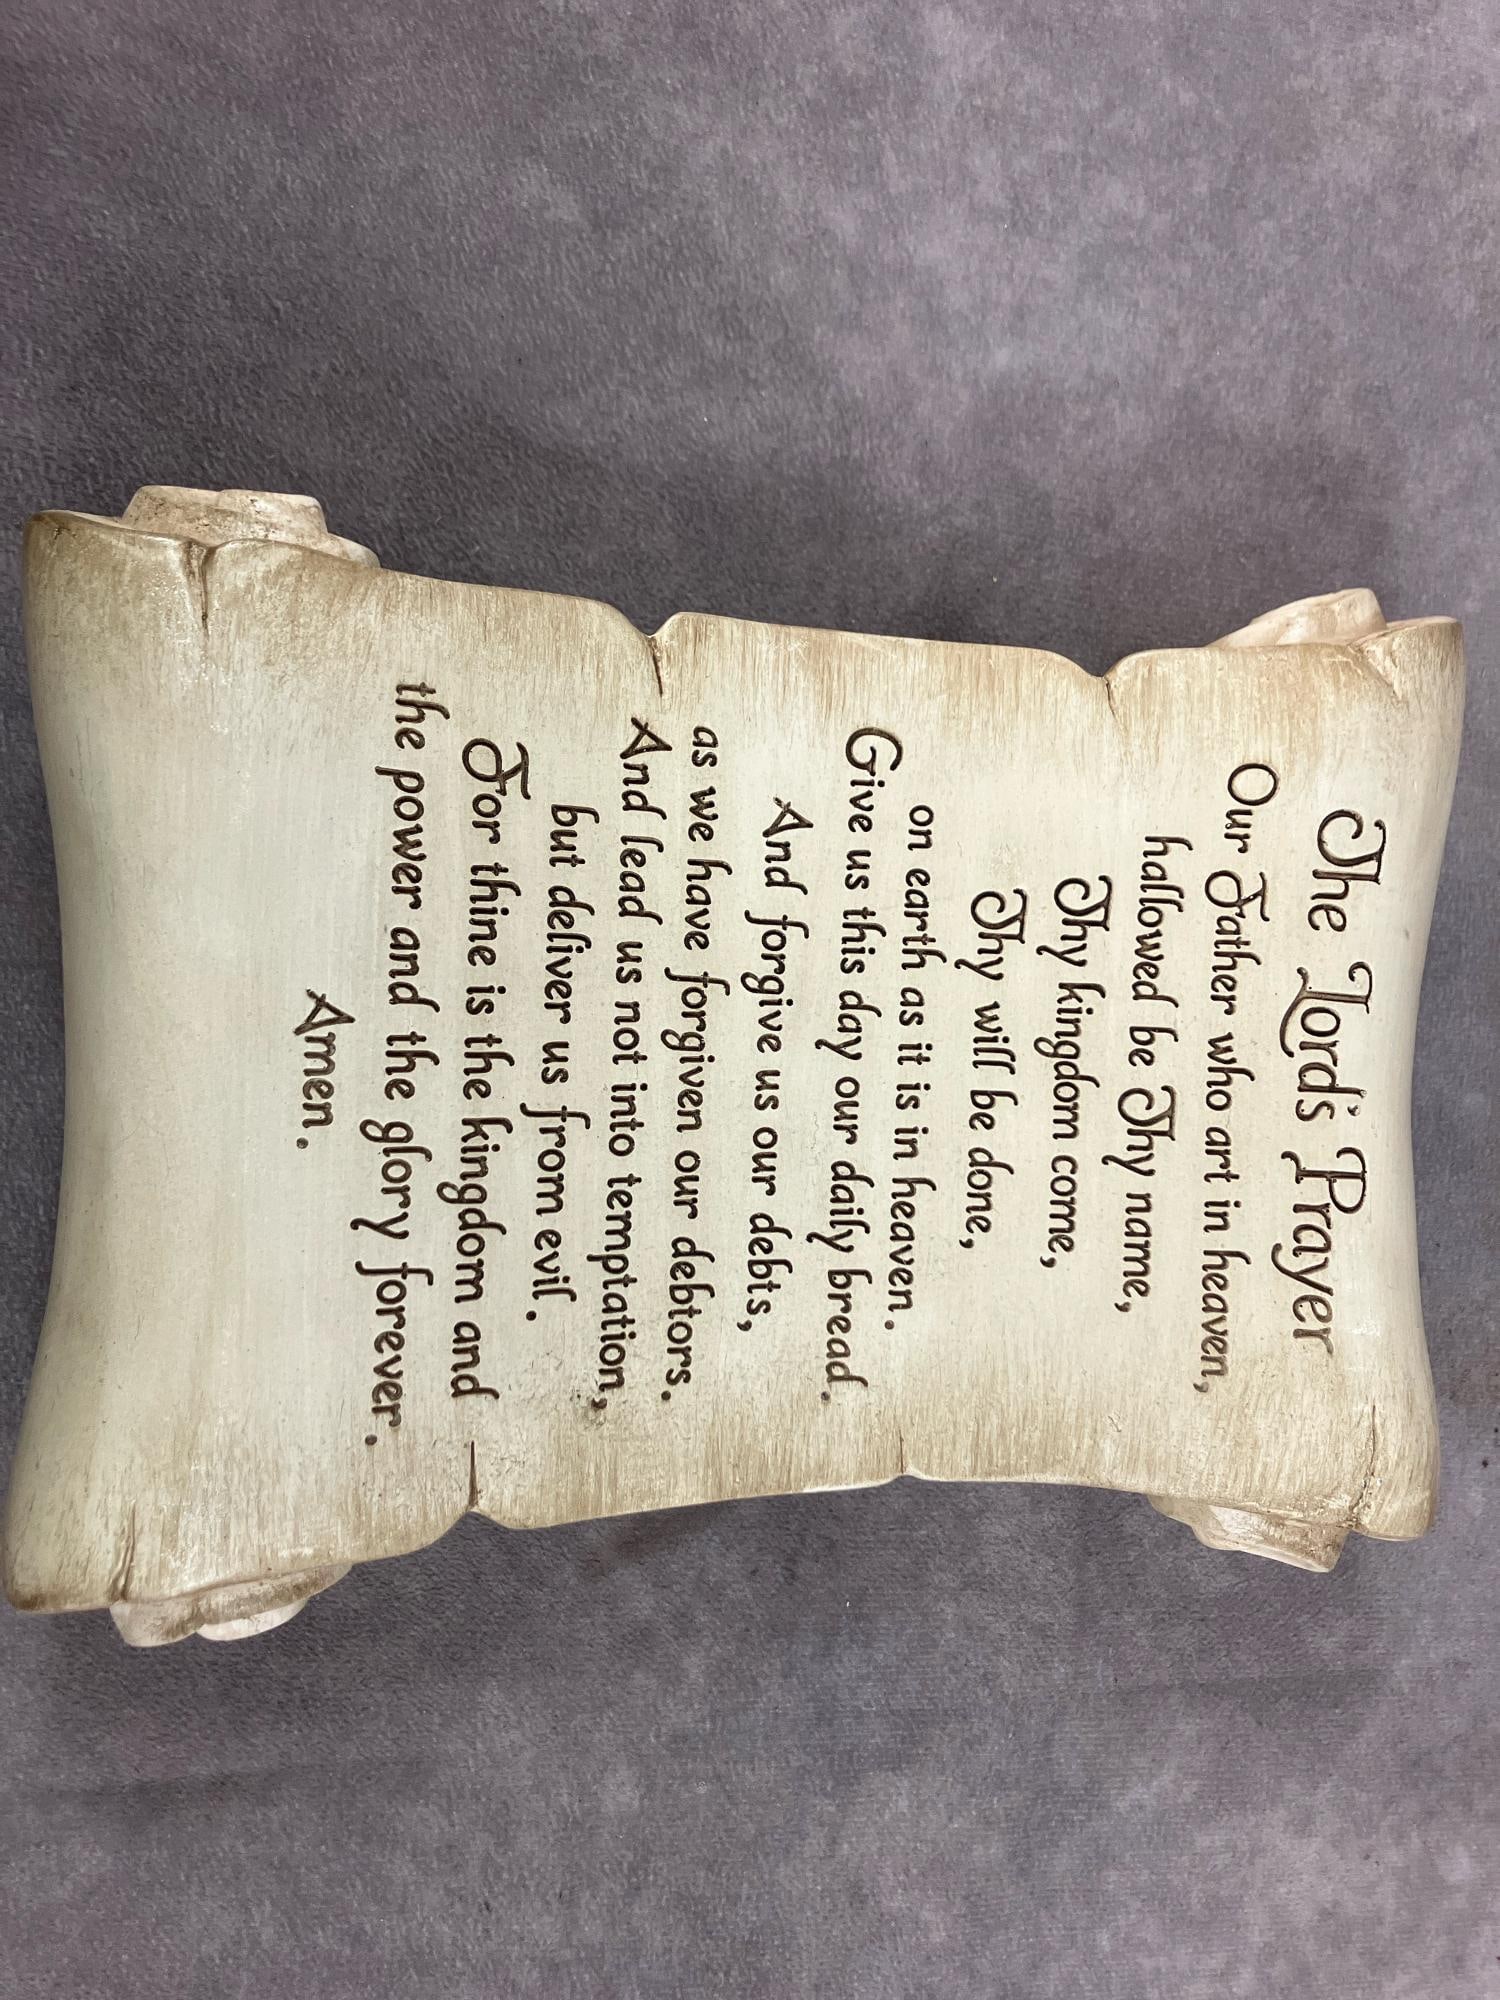 The Lord's Prayer
Our Father who art in heaven,
hallowed be Thy name,
Thy kingdom come,
Thy will be done,
on earth as it is in heaven.
Give us this day our daily bread.
And forgive us our debts,
as we have forgiven our debtors.
And lead us not into temptation,
but deliver us from evil.
For thine is the kingdom and
the power and the glory forever.
Amen.